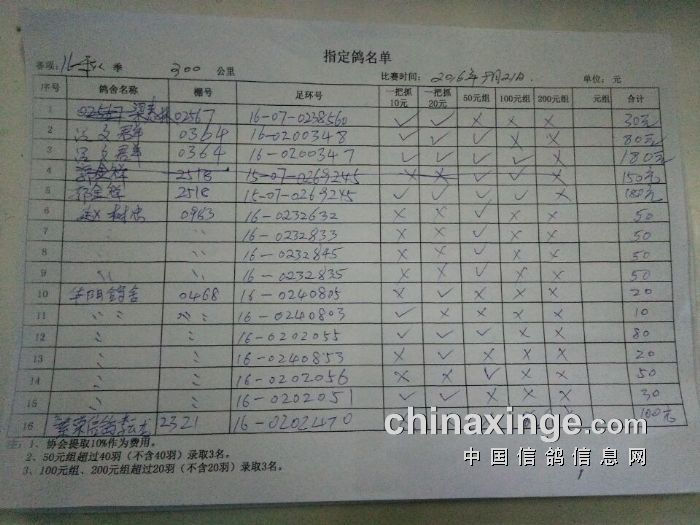 指定鸽名单
赛项: 16 秋 季 300 公里 比赛时间: 2016年 月21日. 单位: 元
序号 鸽舍名称 棚号 足环号 一把抓10元 一把抓20元 50元组 100元组 200元组 元组 合计
1 02567 02567 16-07-0238560 ✓ ✓ × × × 30元
2 文 0364 16-0200348 ✓ ✓ ✓ × × 80元
3 文 0364 16-0200347 ✓ ✓ ✓ ✓ × 180元
4 2518 15-07-0269245 × × ✓ ✓ × 150元
5 2518 15-07-0269245 ✓ ✓ ✓ ✓ × 180元
6 赵树 0983 16-0232632 × × ✓ × × 50
7 〃 〃 16-0232833 × × ✓ × × 50
8 〃 〃 16-0232845 × × ✓ × × 50
9 〃 〃 16-0232835 × × ✓ × × 50
10 鸽舍 0468 16-0240805 × ✓ × × × 20
11 〃 〃 〃 16-0240803 ✓ × × × × 10
12 〃 〃 16-0202055 ✓ ✓ ✓ × × 80
13 〃 〃 16-0240853 × ✓ × × × 20
14 〃 〃 16-0202056 × × ✓ × × 50
15 〃 〃 16-0202051 ✓ ✓ × × × 30
16 2321 16-0202470 100元
注: 1、协会提取10%作为费用。
2、50元组超过40羽(不含40羽)录取3名。
3、100元组、200元组超过20羽(不含20羽)录取3名。
chinaxinge.com
中国信鸽信息网